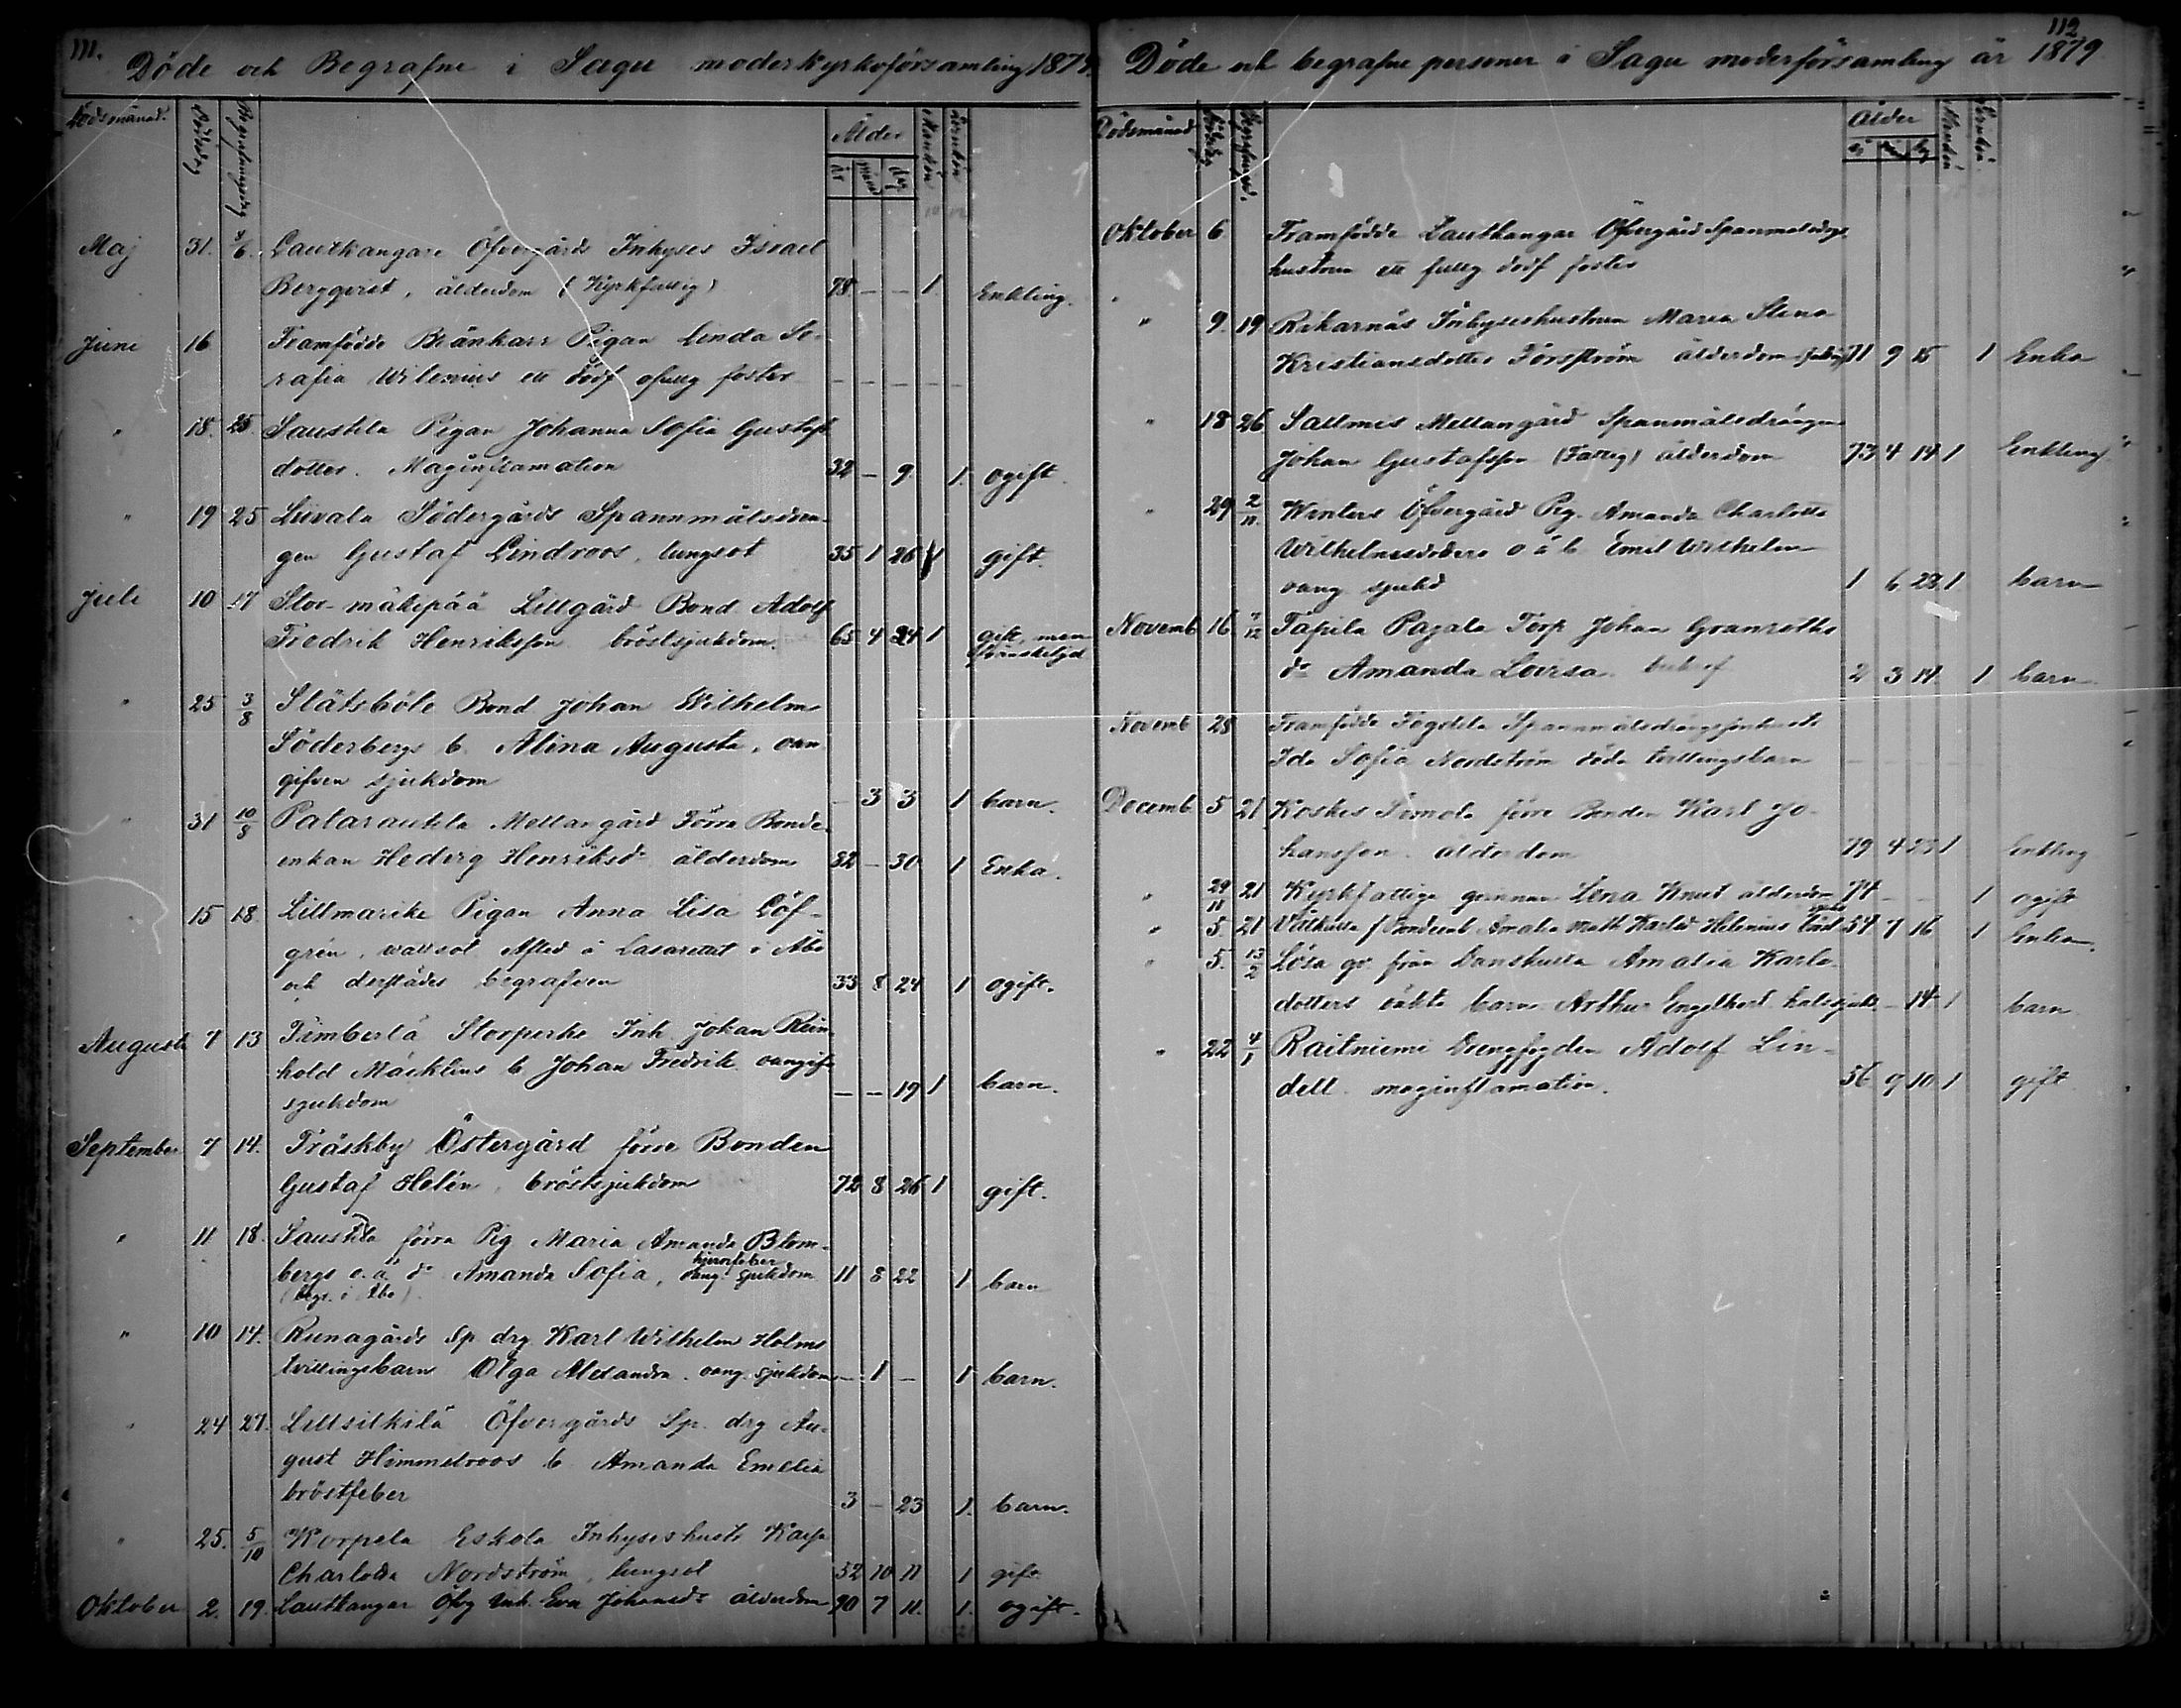 111.
Döde och Begrafne i Sagu moderkyrkoförsamling 1879.
Dödsmånad. Dödsdag Begrafningsdag Ålder Mankön Qvinkön
år månad dag
Maj 31. 8/6. Lautkangare Öfvergårds Inhyses Israel
Bergqvist, ålderdom (Kyrkfattig) 78 — — 1. Enkling.
Juni 16 Framfödde Brånkarr Pigan Linda So-
rafia Wilenius ett dödf ofullg foster — — — — —
" 18. 25. Saustila Pigan Johanna Sofia Gustafs
dotter. Maginflamation 32 — 9. 1. ogift.
" 19 25 Liivala Södergårds Spannmålsdren-
gen Gustaf Lindroos, lungsot 35 1 26 1 gift.
Juli 10 17 Stor-mäkipää Lillgård Bond Adolf
Fredrik Henriksson bröstsjukdom. 65 4 24 1 gift, men
frånskeljd
" 25 3/8 Slätsböle Bond Johan Wilhelm
Söderbergs b. Alina Augusta, oan-
gifven sjukdom — 3 3 1 barn.
" 31 10/8 Palaraukla Mellangård Förra Bonde-
enkan Hedvig Henriksdr ålderdom 82 — 30 1 Enka.
" 15 18. Lillmarike Pigan Anna Lisa Löf-
grén, wattsot Afled å Lasarettet i Åbo
och derstädes begrafven 33 8 24 1 ogift.
Augusti 7 13 Timberlä Storperhe Inh Johan Rein-
hold Mäcklins b Johan Fredrik oangifn
sjukdom — — 19 1 barn.
September 7 14. Träskby Östergård förre Bonden
Gustaf Helén, bröstsjukdom 72 8 26 1 gift.
" 11 18. Saustila förra Pig Maria Amanda Blom-
bergs o.ä dr Amanda Sofia, hjernfeber oang. sjukdom 11 8 22 1 barn
(begr. i Åbo).
" 10 14. Runagårds Sp drg Karl Wilhelm Holms
tvillingsbarn Olga Alexandra. oang. sjukdom — 1 — 1 barn.
" 24 27. Lillsilkilä Öfvergårds Sp. drg Au-
gust Himmelroos b Amanda Emelia
bröstfeber 3 — 23 1. barn.
" 25. 5/10 Korpela Eskola Inhyseshustr Kajsa
Charlotta Nordström, lungsot 52 10 11 1 gift
Oktober 2. 19. Lautkangar Öfvg Inh. Eva Johansdr ålderdom 90 7 11. 1. ogift.
112
Döde och begrafne personer i Sagu moderförsamling år 1879
Dödsmånad Dödsdag Begrafningsd. Ålder Mankön Qvinkön
år mån dag
Oktober 6 Framfödde Lautkangar Öfvergård Spanmålsdrgs
hustrun ett fullg dödf foster
" 9. 19 Rikarnäs Inhyseshustrun Maria Stina
Kristiansdotter Forsström ålderdom 71 9 15 1 Enka
" 18 26 Sallmis Mellangård Spanmålsdrängen
Johan Gustafsson (Fattig) ålderdom 73 4 14 1 Enkling
" 29 2/11. Winters Öfvergård Pig. Amanda Charlotta
Wilhelmsdotters o ä b Emil Wilhelm
oang sjukd 1 6 22 1 barn
Novemb 16 7/12 Tapila Pagala Torp Johan Granroths
dr Amanda Lovisa. 2 3 14. 1 barn.
Novemb 28 Framfödde Togdila Spannmålsdrängshustr
Ida Sofia Nordström döda tvillingsbarn
Decemb 5 21 Koskis Simola förre Bonden Karl Jo-
hansson. ålderdom 79 4 23 1 Enkling
" 29/11 21 Kyrkfattiga qvinnan Lena Knut ålderdom 74 — — 1 ogift
" 5. 21 Bondeenk Amalia Math Karlsd Helenius 54 7 16 1 Enka.
" 5. 13/2 Lösa qv. från Danskulla Amalia Karls-
dotters oäkta barn Arthur Engelbert halssjukd — 14 1 barn
" 22 4/1 Raitniemi Drengfogden Adolf Lin-
dell. maginflamation. 56 9 10 1 gift